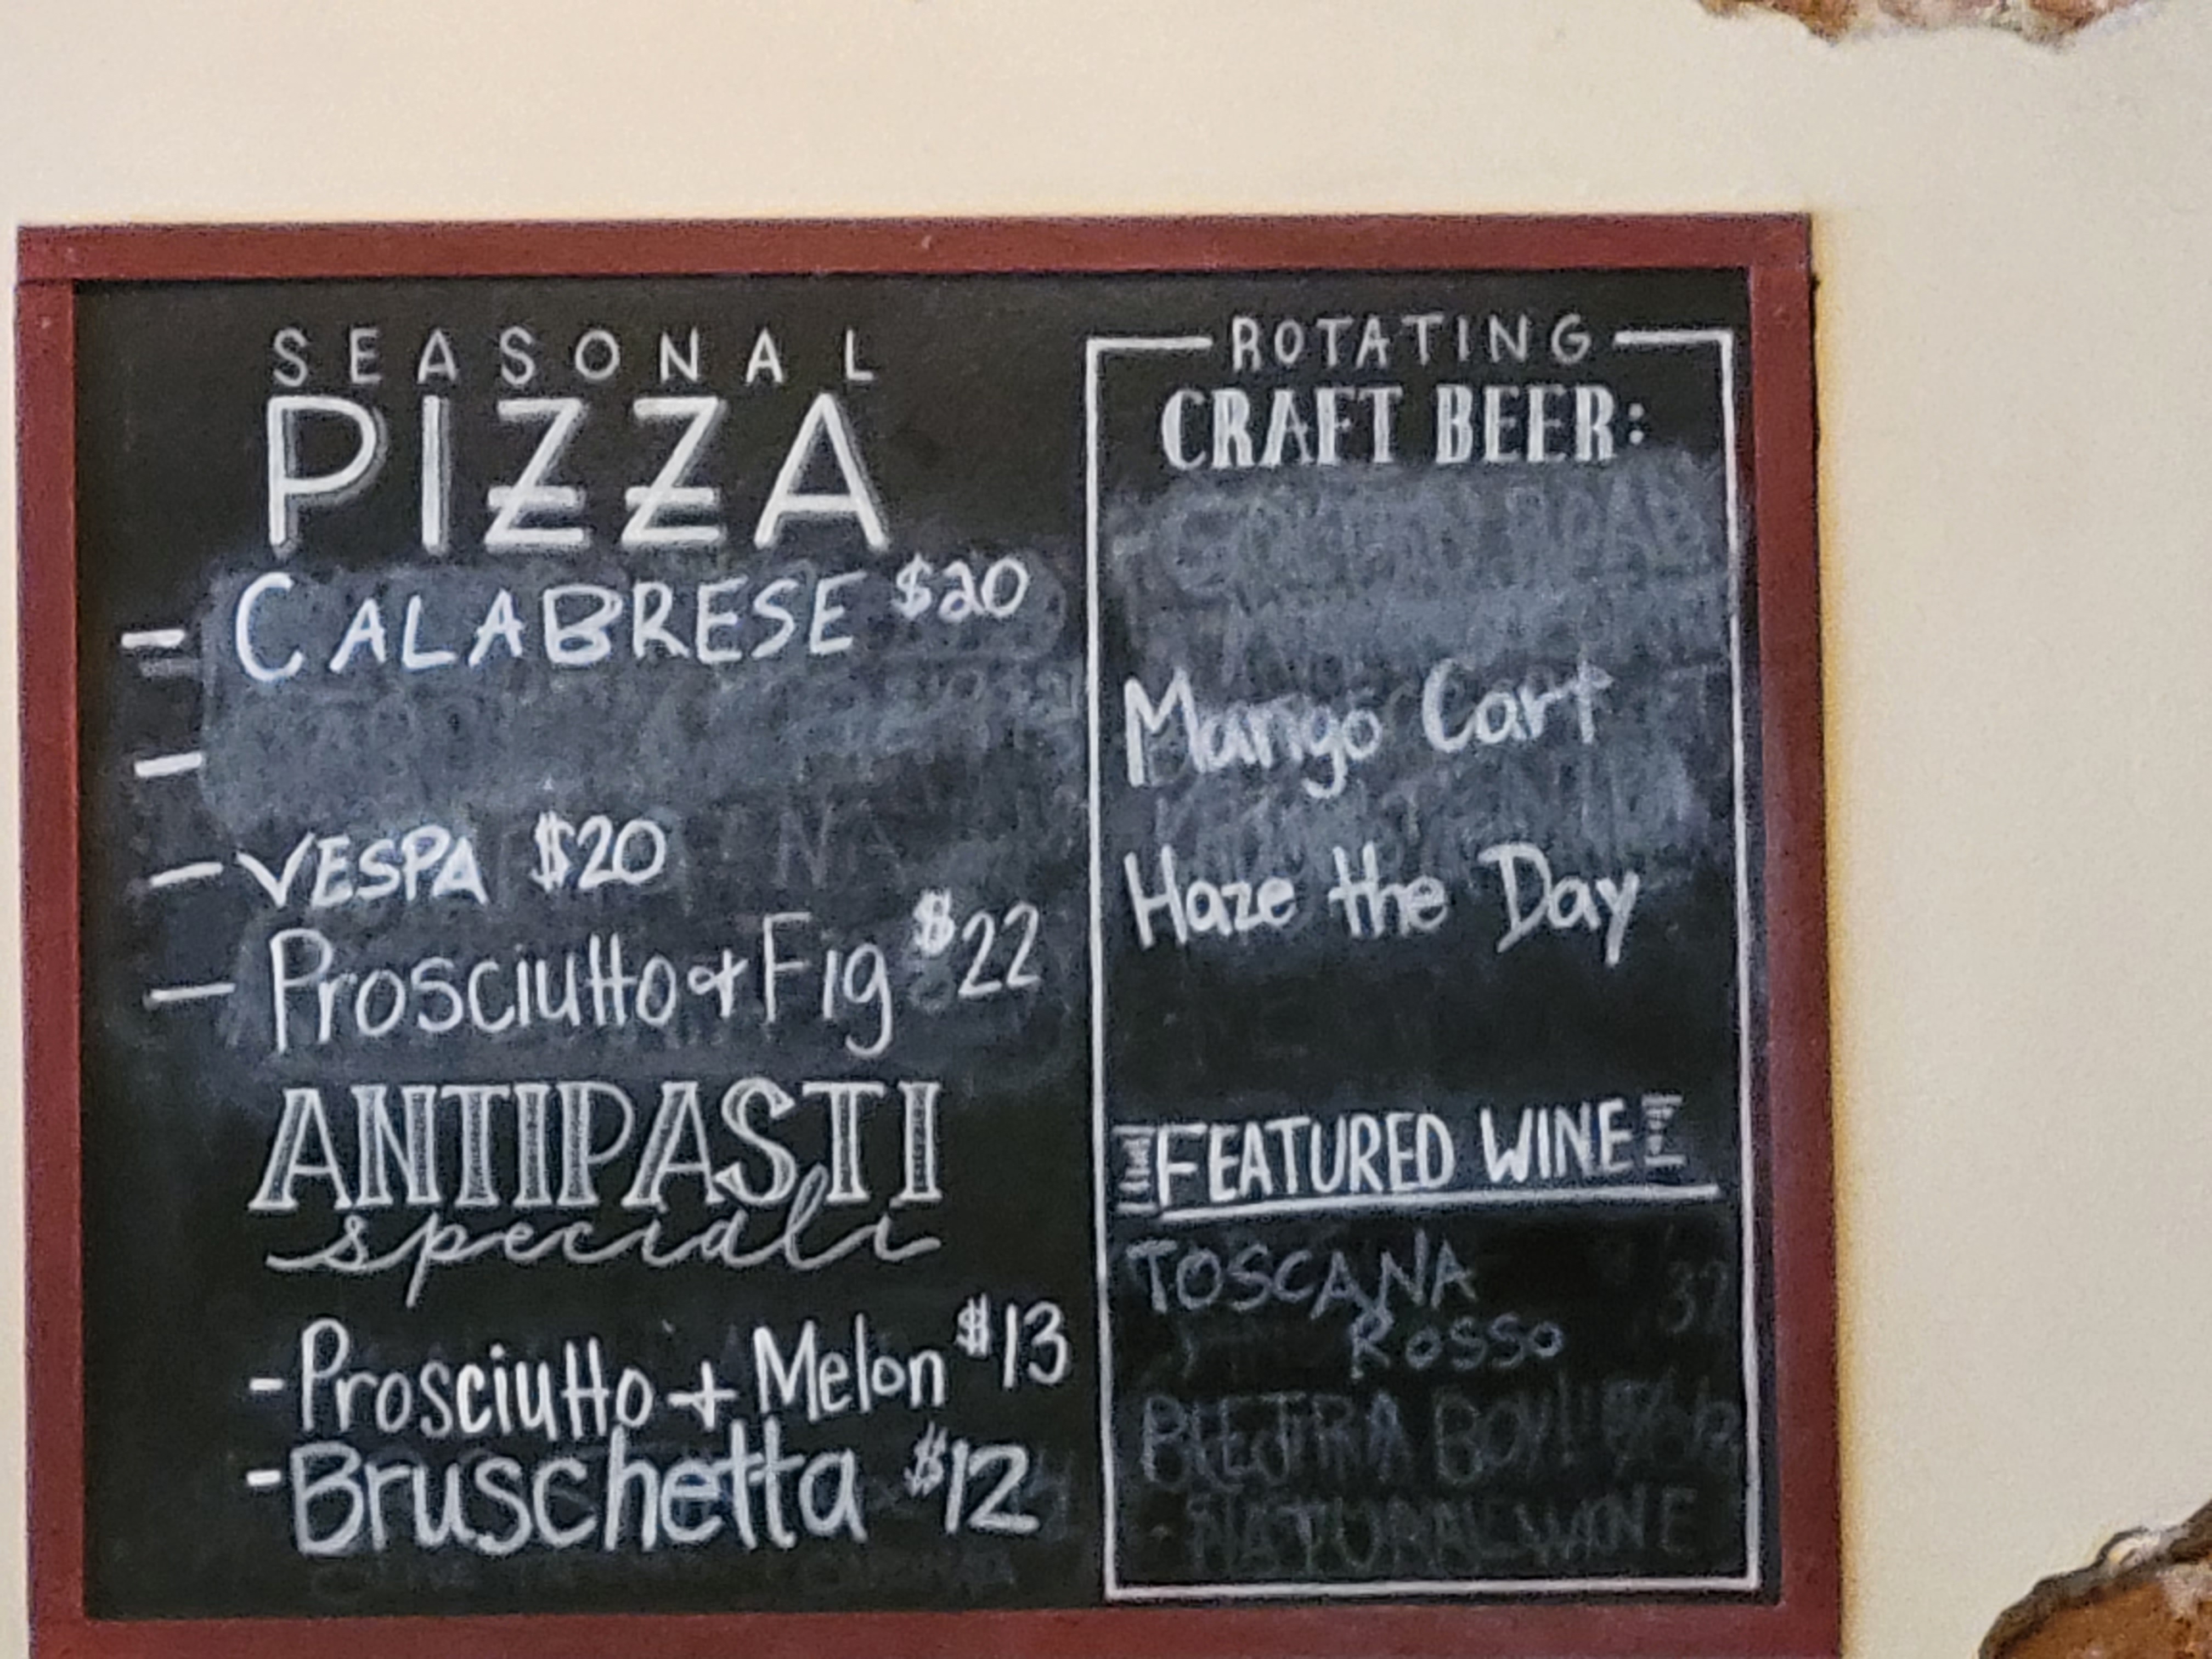 SEASONAL
PIZZA
– CALABRESE $20
–
– VESPA $20
– Prosciutto & Fig $22
ANTIPASTI
speciali
- Prosciutto + Melon $13
- Bruschetta $12
ROTATING
CRAFT BEER:
Mango Cart
Haze the Day
FEATURED WINE
TOSCANA
ROSSO
NATURAL WINE